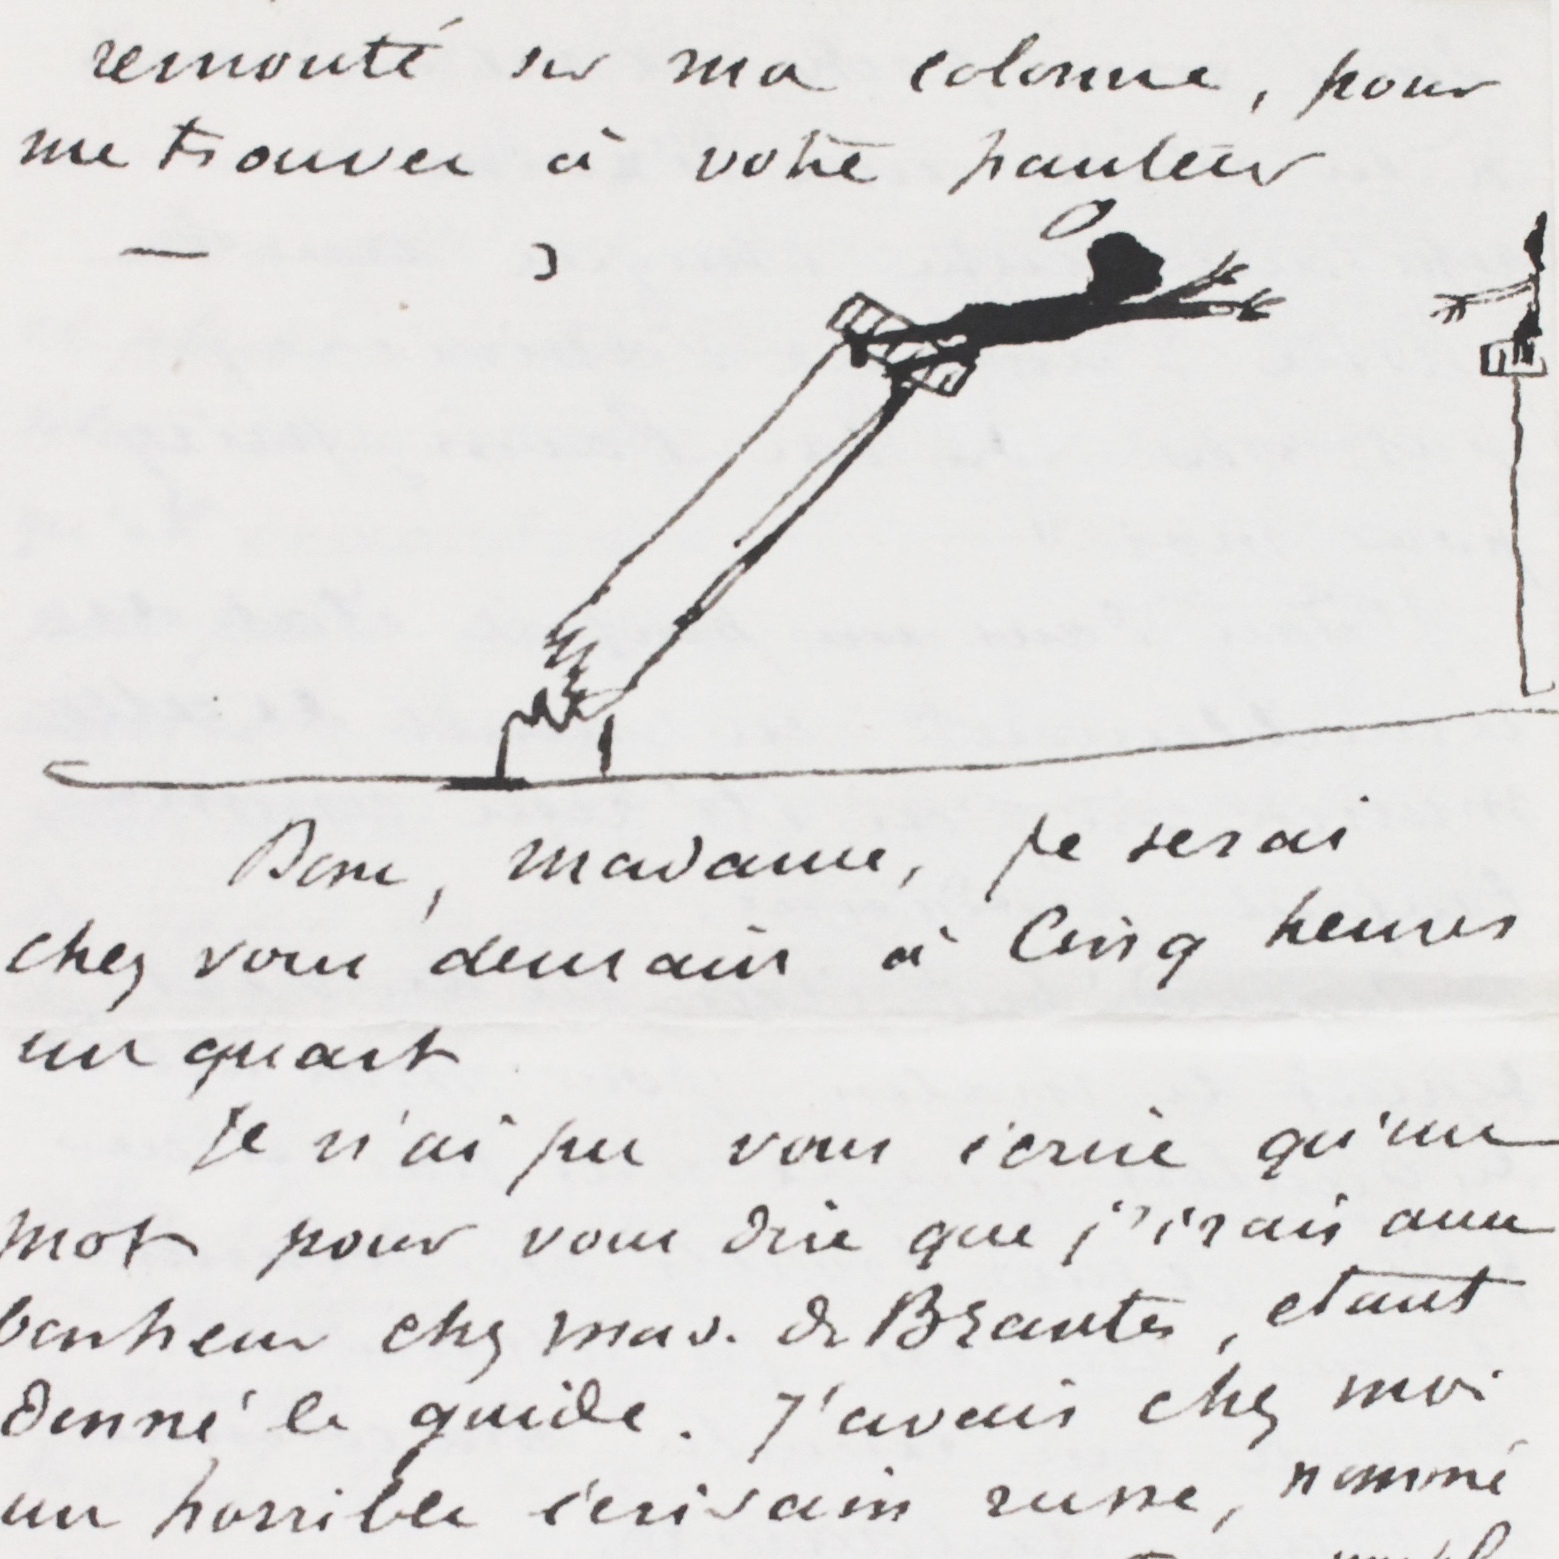 remonté sur ma colonne, pour
me trouver à votre hauteur
Donc, madame, je serai
chez vous demain à Cinq heures
un quart
Je n'ai pu vous écrire qu'un
mot pour vous dire que j'irais avec
bonheur chez mad. de Brantes, etant
donné le guide. J'avais chez moi
un horrible écrivain russe, nommé